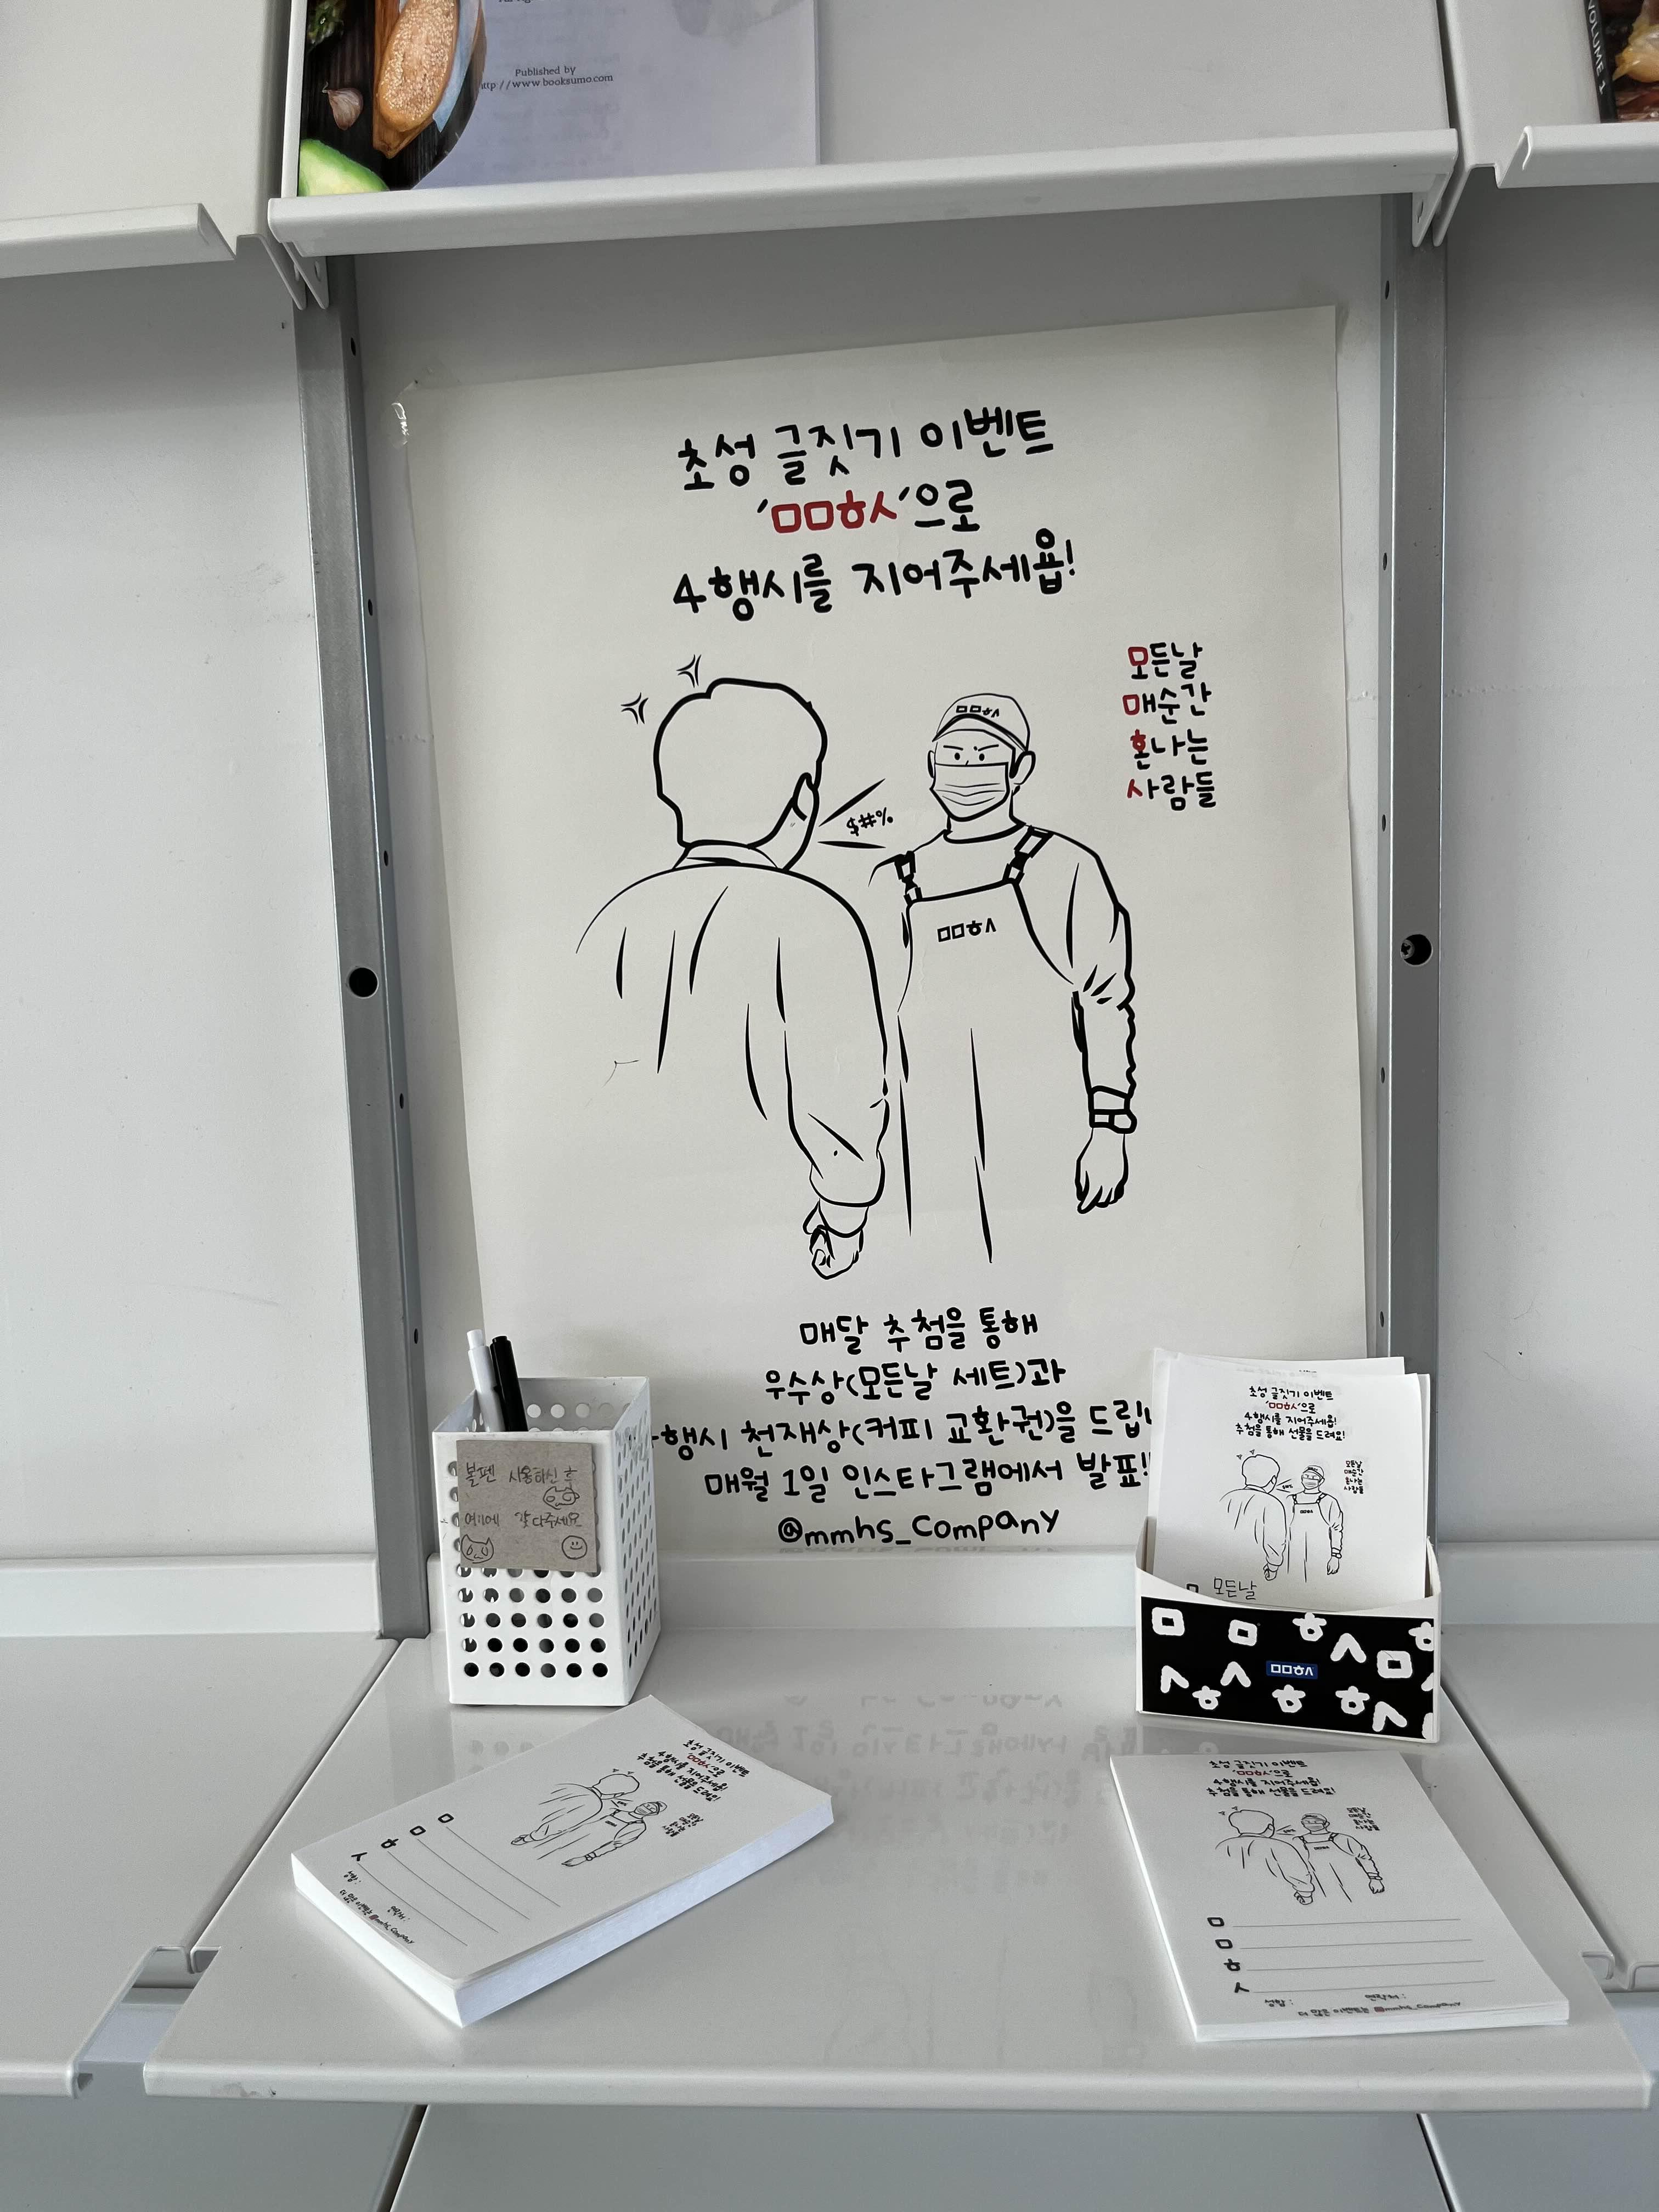 Published by
http://www.booksumo.com
VOLUME 1
초성 글짓기 이벤트
'ㅁㅁㅎㅅ'으로
4행시를 지어주세욥!
모든날
매순간
혼나는
사람들
ㅁㅁㅎㅅ
$#%
ㅁㅁㅎㅅ
매달 추첨을 통해
우수상(모든날 세트)과
행시 천재상(커피 교환권)을 드립
매월 1일 인스타그램에서 발표!
@mmhs_company
볼펜 사용하신 후
여기에 갖다주세요
초성 글짓기 이벤트
'ㅁㅁㅎㅅ'으로
4행시를 지어주세욥!
추첨을 통해 선물을 드려요!
모든날
매순간
혼나는
사람들
ㅁ 모든날
ㅁ ㅁ ㅎ ㅅ ㅎ
ㅁㅁㅎㅅ
ㅅ ㅎ ㅅ ㅎ ㅎ ㅅ ㅁ
초성 글짓기 이벤트
'ㅁㅁㅎㅅ'으로
4행시를 지어주세욥!
추첨을 통해 선물을 드려요!
모든날
매순간
혼나는
사람들
ㅁ
ㅁ
ㅎ
ㅅ
성함 : 연락처 :
더 많은 이벤트는 @mmhs_company
초성 글짓기 이벤트
'ㅁㅁㅎㅅ'으로
4행시를 지어주세욥!
추첨을 통해 선물을 드려요!
모든날
매순간
혼나는
사람들
ㅁ
ㅁ
ㅎ
ㅅ
성함 : 연락처 :
더 많은 이벤트는 @mmhs_company